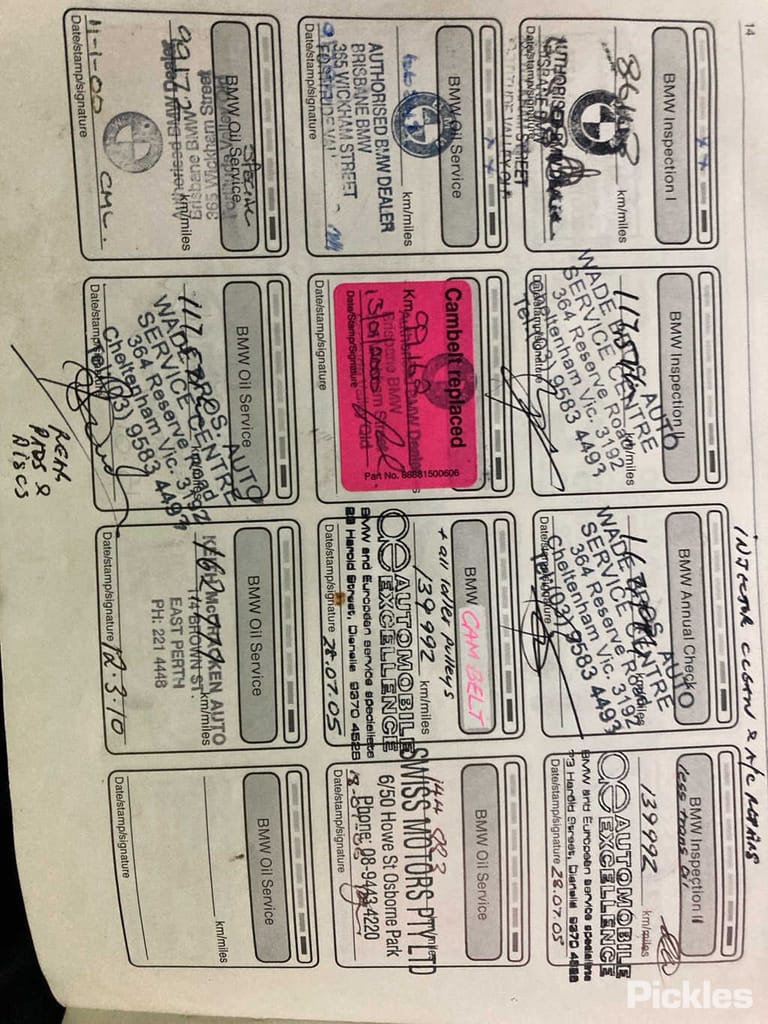 14
INJECTOR CLEAN & A/C REPAIRS
BMW Inspection I
86108
km/miles
AUTHORISED BMW
BRISBANE BMW
Date/stamp/signature
BMW Inspection II
km/miles
WADE BROS. AUTO
SERVICE CENTRE
364 Reserve Road
Cheltenham Vic. 3192
Tel: (03) 9583 4493
Date/stamp/signature
BMW Annual Check
km/miles
WADE BROS. AUTO
SERVICE CENTRE
364 Reserve Road
Cheltenham Vic. 3192
(03) 9583 4493
Date/stamp/signature
BMW Inspection II
less trans oil
139992
km/miles
AUTOMOBILE
EXCELLENCE
BMW and European service specialists
23 Harold Street, Dianella 9270 4526
Date/stamp/signature 28.07.05
BMW Oil Service
km/miles
AUTHORISED BMW DEALER
BRISBANE BMW
365 WICKHAM STREET
FORTITUDE VALLEY
Date/stamp/signature
Cambelt replaced
Km
Authorised BMW Dealer
Brisbane BMW
Date/Stamp/Signature
Part No. 88881500606
Date/stamp/signature
BMW CAM BELT
+ all idler pulleys
139992 km/miles
AUTOMOBILE
EXCELLENCE
BMW and European service specialists
23 Harold Street, Dianella 9270 4526
Date/stamp/signature 28.07.05
BMW Oil Service
144 883
km/miles
SWISS MOTORS PTY LTD
6/50 Howe St Osborne Park
Phone: 08-9443 4220
Date/stamp/signature
BMW Oil Service
365 Wickham Street
Brisbane BMW
Authorised BMW Dealer
km/miles
Date/stamp/signature
11-1-00 CML.
BMW Oil Service
km/miles
WADE BROS. AUTO
SERVICE CENTRE
364 Reserve Road
Cheltenham Vic. 3192
(03) 9583 4493
Date/stamp/signature
REAR
PADS &
DISCS
BMW Oil Service
km/miles
KEITH McCRACKEN AUTO
114 BROWN ST.
EAST PERTH
PH: 221 4448
Date/stamp/signature 12.3.10
BMW Oil Service
km/miles
Date/stamp/signature
Pickles